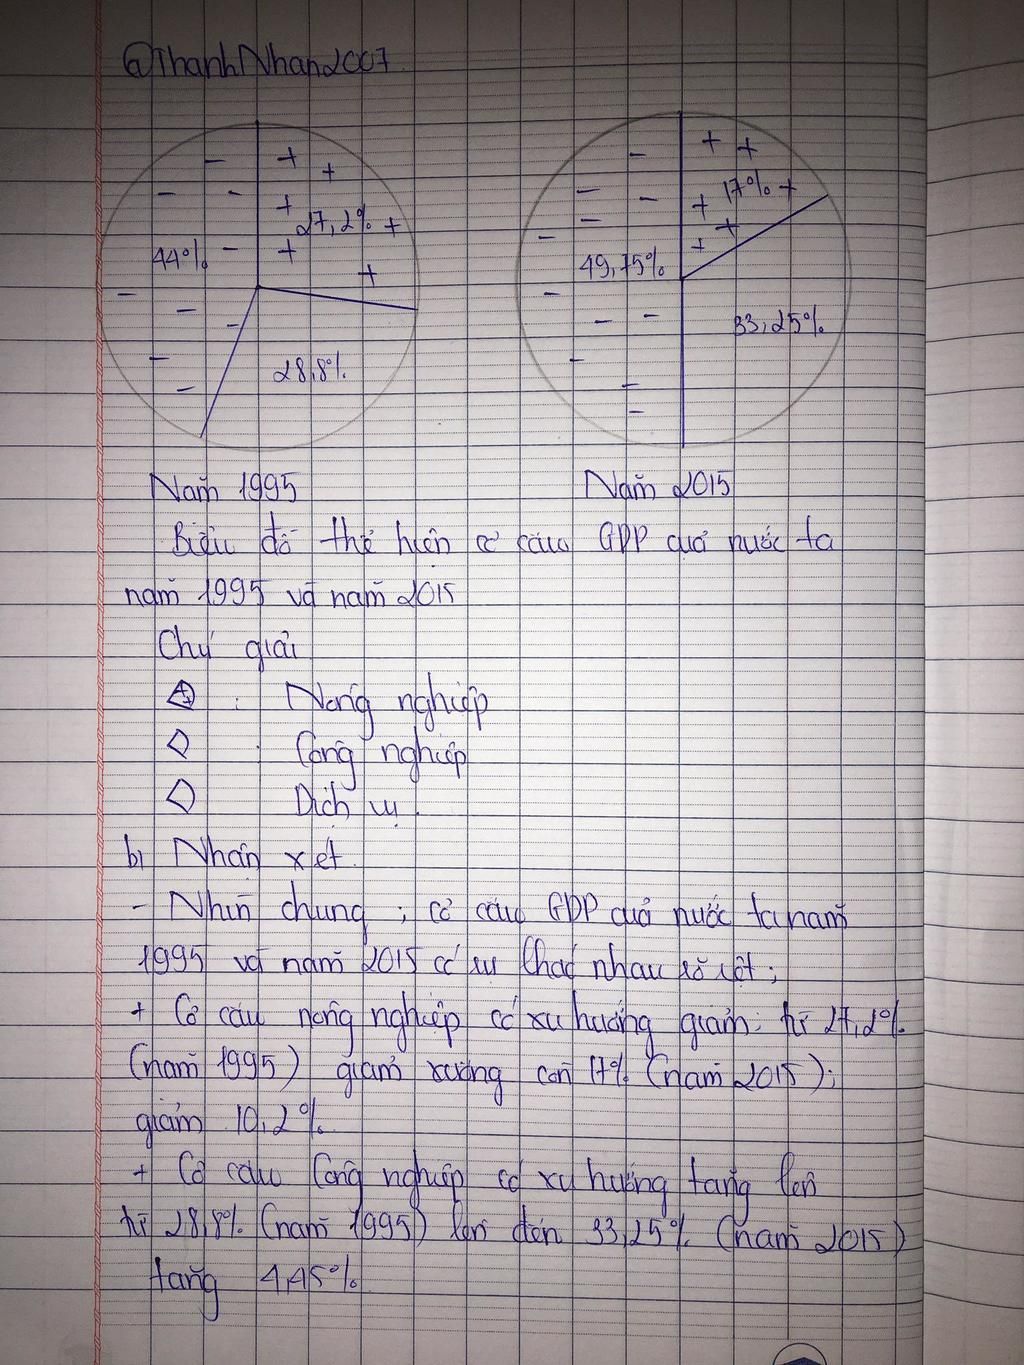 @ThanhNhan2007
27,2%
44%
28,8%
17%
49,75%
33,25%
Năm 1995
Năm 2015
Biểu đồ thể hiện cơ cấu GDP của nước ta
năm 1995 và năm 2015
Chú giải
: Nông nghiệp
: Công nghiệp
Dịch vụ.
b) Nhận xét.
- Nhìn chung, cơ cấu GDP của nước ta năm
1995 và năm 2015 có sự khác nhau rõ rệt;
+ Cơ cấu nông nghiệp có xu hướng giảm: từ 27,2%
(năm 1995) giảm xuống còn 17% (năm 2015);
giảm 10,2%
+ Cơ cấu Công nghiệp có xu hướng tăng lên
từ 28,8% (năm 1995) lên đến 33,25% (năm 2015)
tăng 4,45%